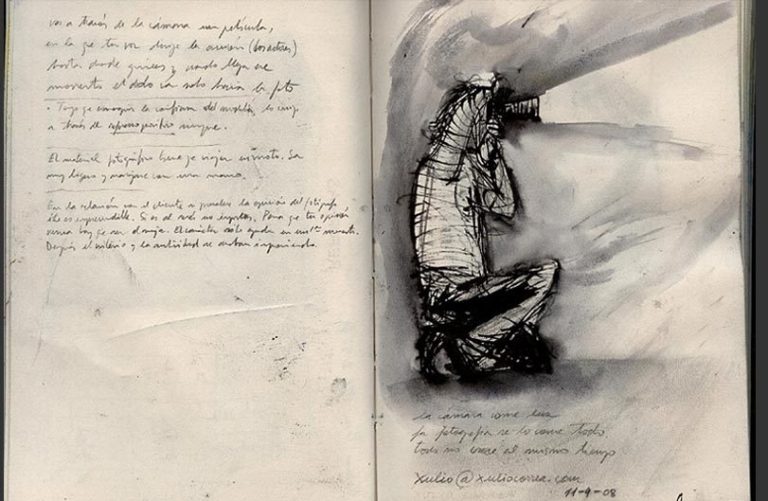 voz a través de la cámara una película,
en la que tu voz dirige la acción (los actores)
hasta donde quieres y cuando llega ese
momento el dedo va solo hacia la foto
• Tengo que conseguir la confianza del modelo,
a través de siempre.
El material fotográfico tiene que viajar conmigo. Ser
muy ligero y manejarse con una mano.
En la relación con el cliente a priori la opinión del fotógrafo
es imprescindible. Si es al revés no importas. Para que tu opinión
venza hay que ser El carácter solo ayuda en un 1er momento.
Después el criterio y la actividad se acaban imponiendo.
la cámara come luz
la fotografía se lo come todo
todo no crece al mismo tiempo
xulio@xuliocorrea.com
11-9-08